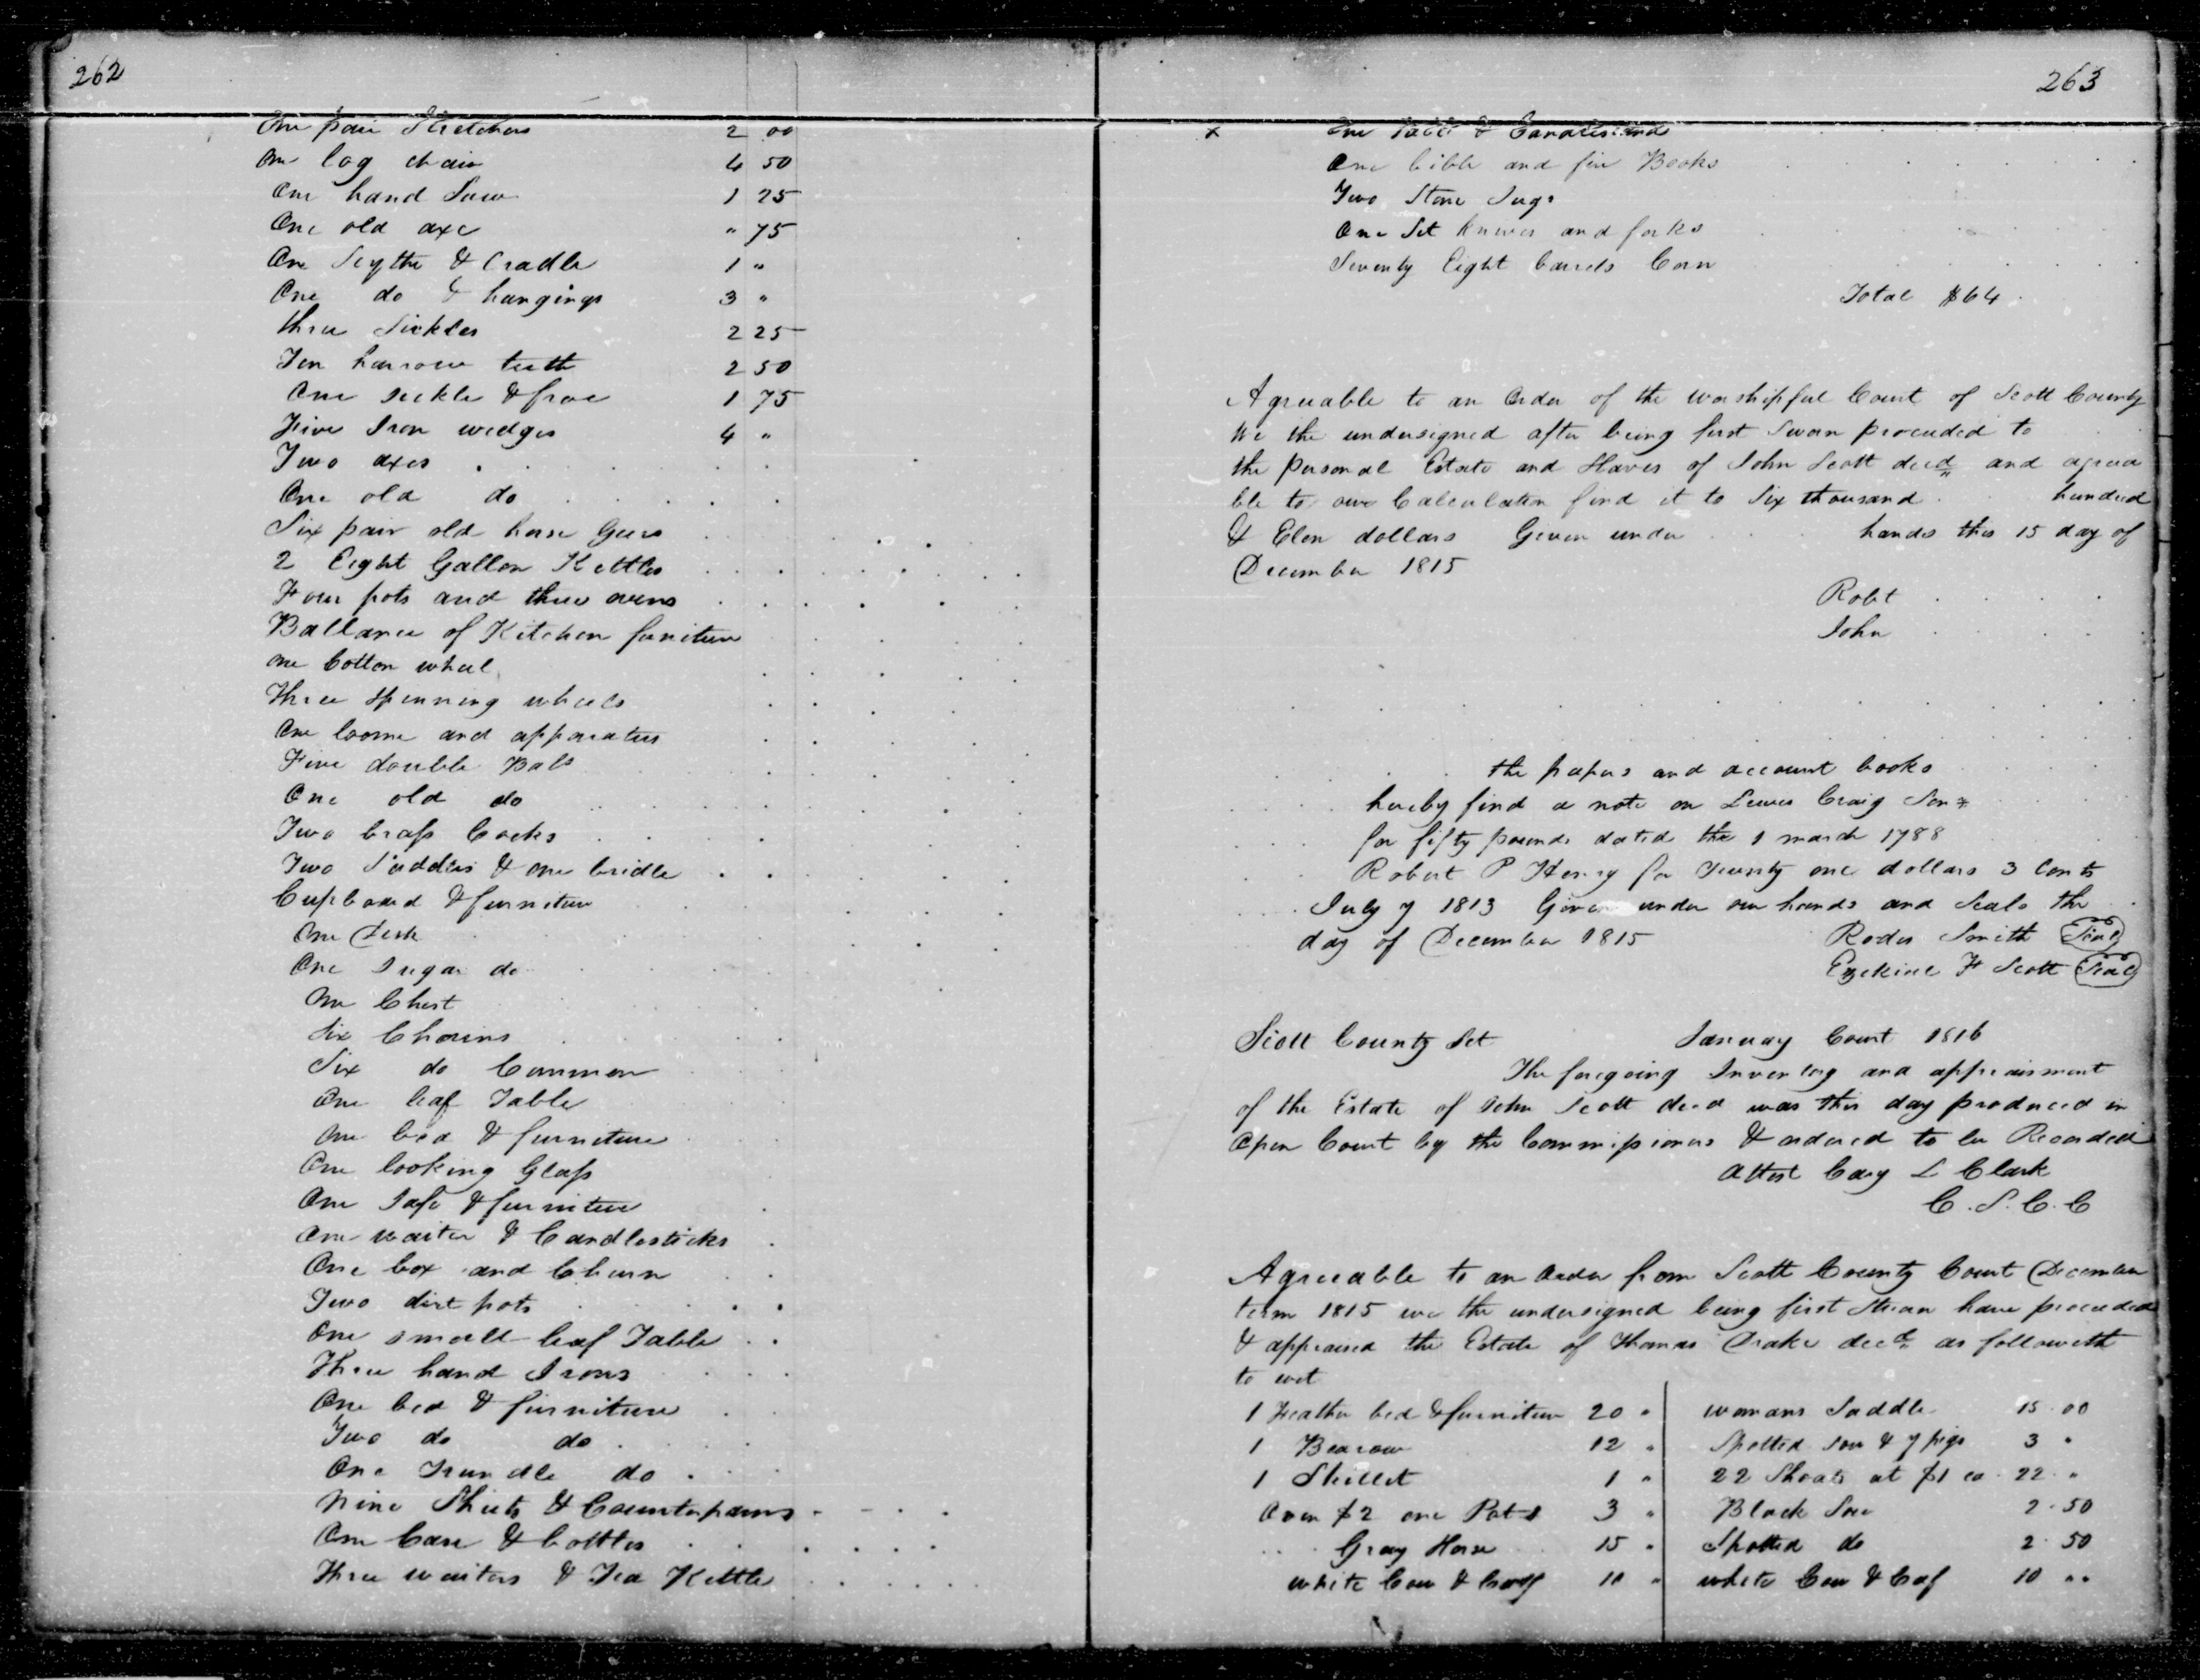 262
One pair Stretchers 2 00
One log chain 4 50
One hand Saw 1 25
One old axe " 75
One Scythe & Cradle 1 "
One do & hangings 3 "
three Sickles 2 25
Ten harrow teeth 2 50
One sickle & froe 1 75
Five Iron wedges 4 "
Two axes
One old do
Six pair old horse Geers
2 Eight Gallon Kettles
Four pots and three ovens
Ballance of Kitchen furniture
one Cotton wheel
Three spinning wheels
One loome and apparatus
Five double Bals
One old do
Two brass Cocks
Two Saddles & one bridle
Cupboard & furniture
One Desk
One Sugar do
One Chest
Six Chairs
Six do Common
One leaf Table
One bed & furniture
One looking Glass
One Safe & furniture
One waiter & Candlesticks
One box and Churn
Two dirt pots
One small leaf Table
Three hand Irons
One bed & furniture
Two do do
One Trundle do
Nine Sheets & Counterpanes
One Case & bottles
Three waiters & Tea Kettle
263
x One &
One bible and five Books
Two Stone Jugs
One Set knives and forks
Seventy Eight barrels Corn
Total $64
Agreeable to an Order of the worshipful Court of Scott County
We the undersigned after being first Sworn proceeded to
the personal Estate and Slaves of John Scott decd and agrea
ble to our Calculation find it to Six thousand hundred
& Elen dollars Given under hands this 15 day of
December 1815
Robt
John
the papers and account books
hereby find a note on Lewis Craig Senr
for fifty pounds dated the 1 march 1788
Robert P Henry for Twenty one dollars 3 Cents
July 7 1813 Given under our hands and Seals the
day of December 1815 Rodes Smith Seal
Ezekiel H Scott Seal
Scott County Sct January Court 1816
The foregoing Inventory and appraisment
of the Estate of John Scott decd was this day produced in
Open Court by the Commissioners & ordered to be Recorded
Attest Cary L Clark
C. S. C. C
Agreeable to an Order from Scott County Court December
term 1815 we the undersigned being first Sworn have proceeded
& appraised the Estate of Thomas Drake decd as followeth
to wit
1 Feather bed & furniture 20 " womans Saddle 15.00
1 Bearow 12 " Spotted sow & 7 pigs 3 "
1 Skillet 1 " 22 Shoats at $1 ea 22 "
Oven $2 one Pot 1 3 " Black Sow 2.50
Gray Horse 15 " Spotted do 2.50
white Cow & Calf 10 " white Cow & Caf 10 ""